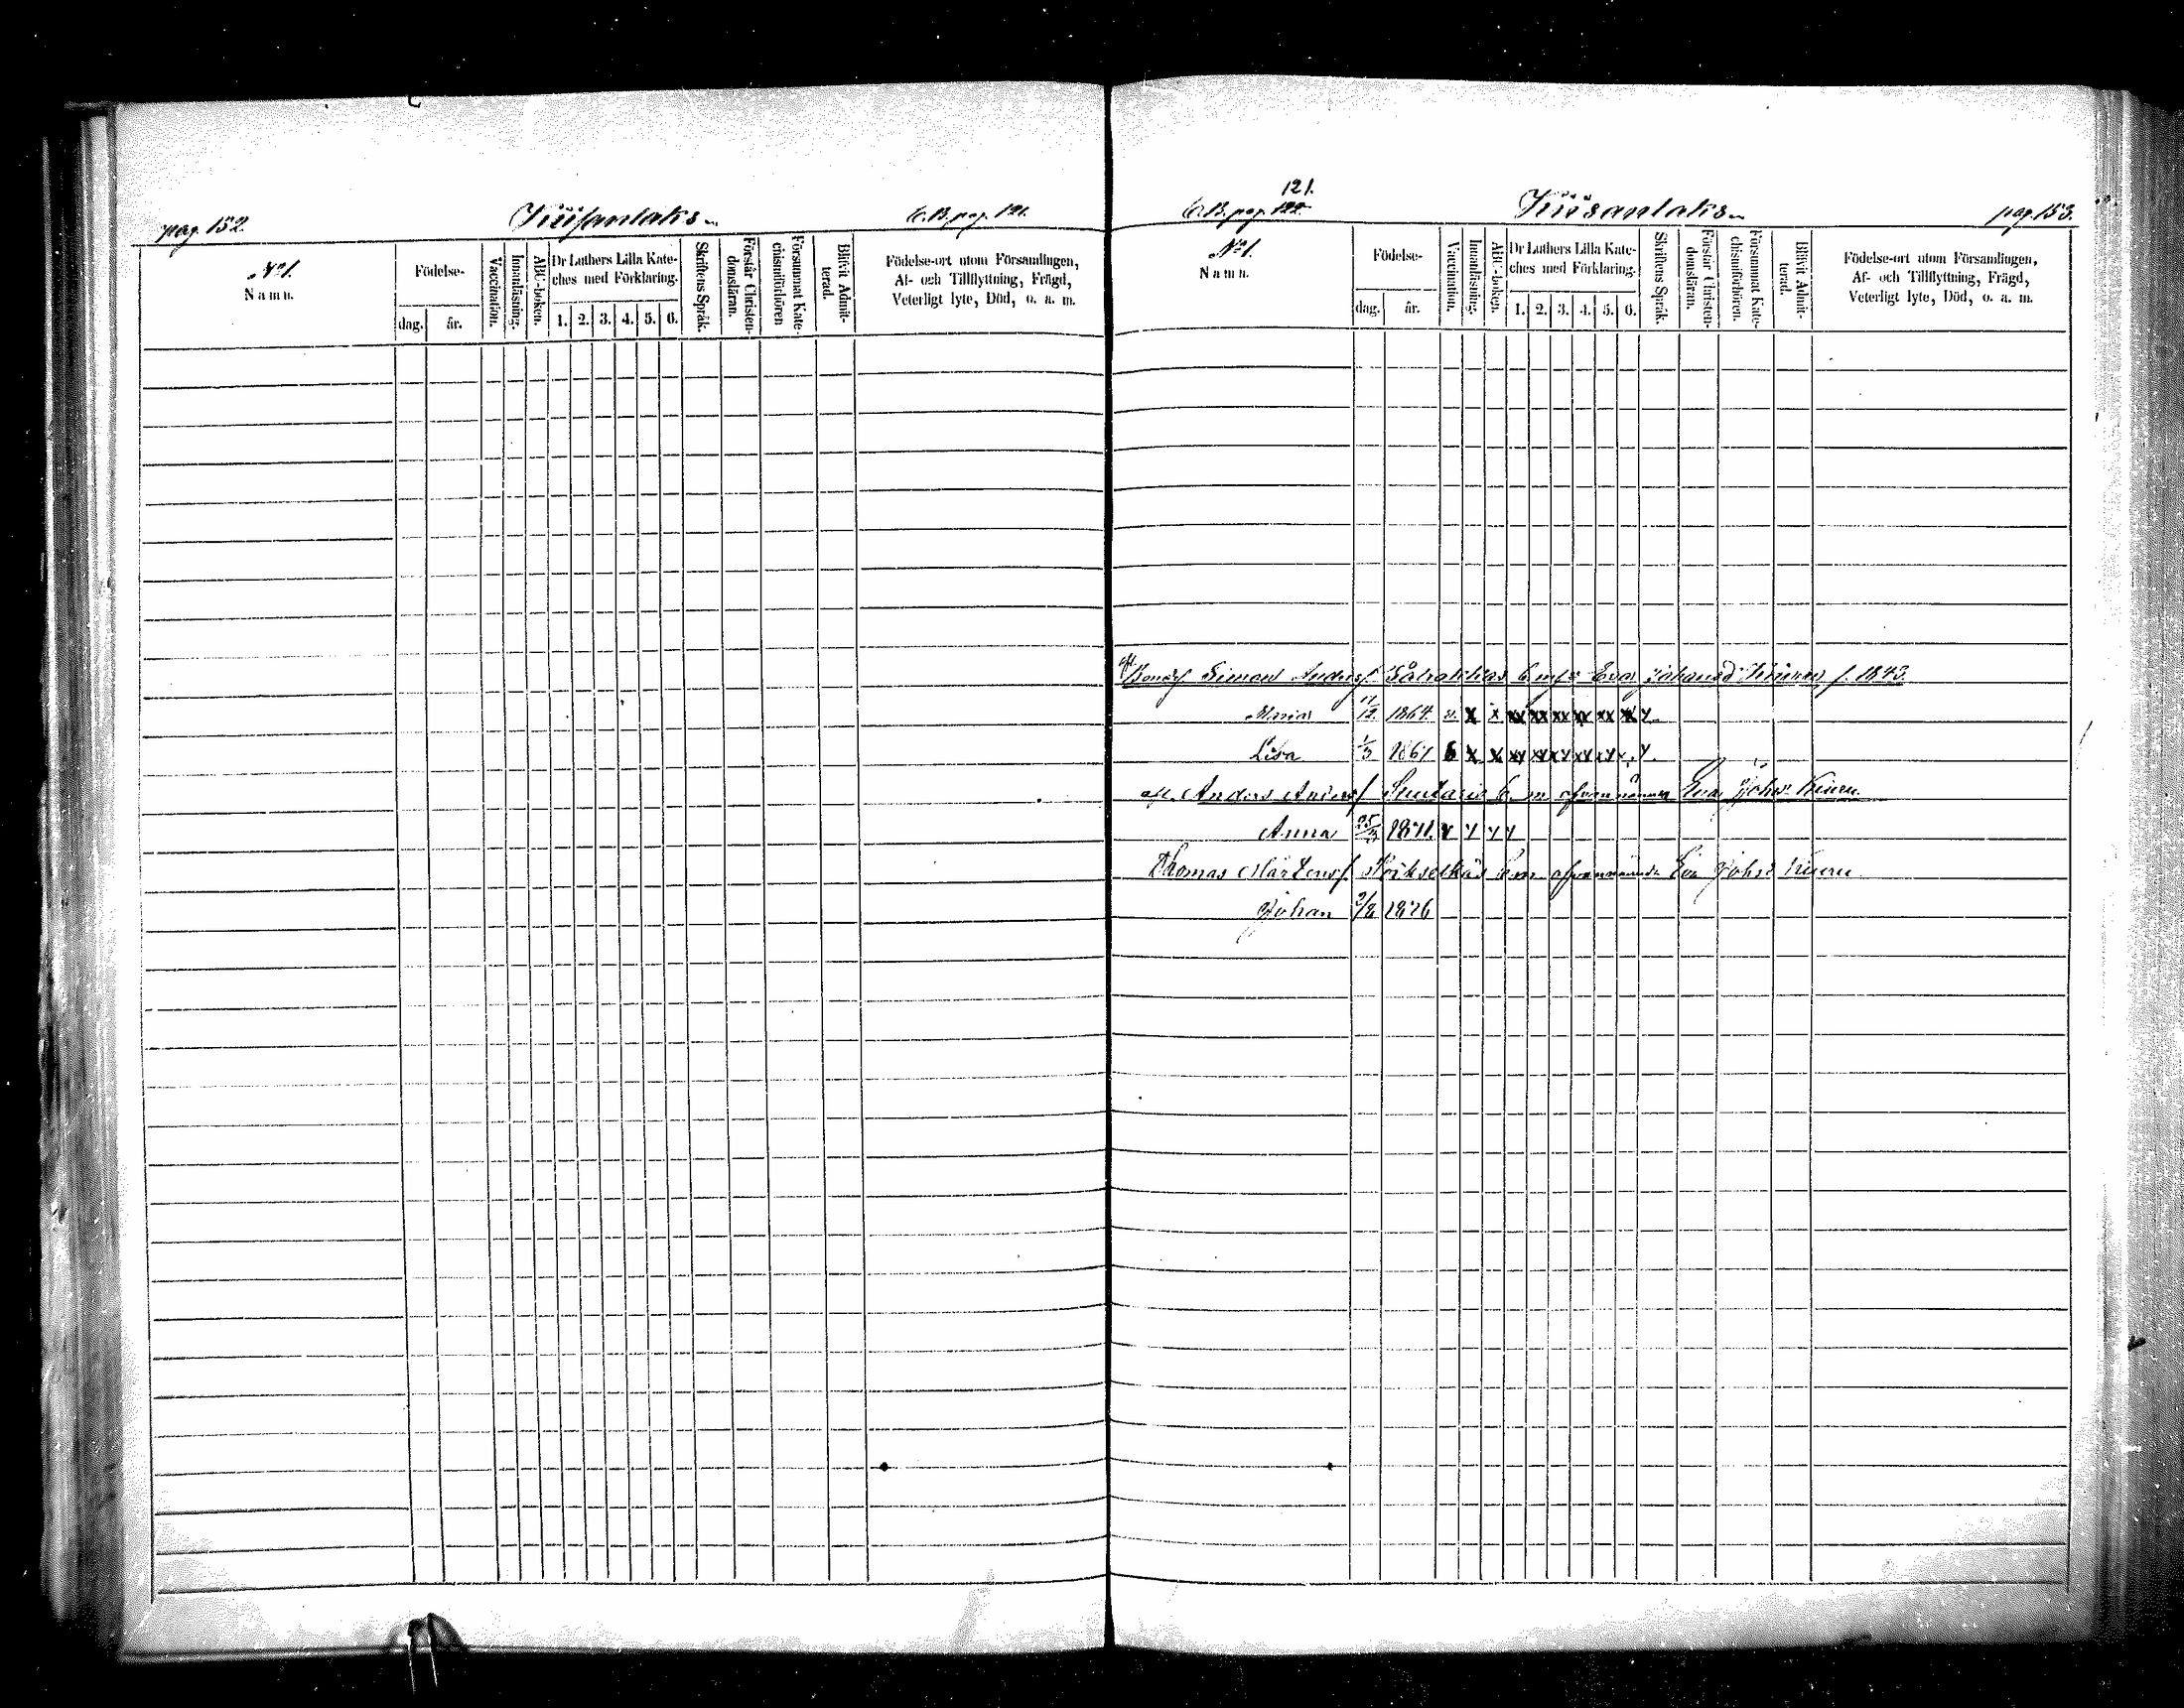 pag. 152.
Kiisanlaks
C.B. pag. 121.
No 1.
Namn.
Födelse-
dag.
år.
Vaccination.
Innanläsning.
ABC-boken.
Dr Luthers Lilla Kate-
ches med Förklaring.
1. 2. 3. 4. 5. 6.
Skriftens Språk.
Förstår Christen-
domsläran.
Försummat Kate-
chismiförhören
Blifvit Admit-
terad.
Födelse-ort utom Församlingen,
Af- och Tillflyttning, Frägd,
Veterligt lyte, Död, o. a. m.
121.
C.B. pag.
Kiisanlaks
pag. 153.
No 1.
Namn.
Födelse-
dag.
år.
Vaccination.
Innanläsning.
ABC-boken.
Dr Luthers Lilla Kate-
ches med Förklaring.
1. 2. 3. 4. 5. 6.
Skriftens Språk.
Förstår Christen-
domsläran.
Försummat Kate-
chismiförhören.
Blifvit Admit-
terad.
Födelse-ort utom Församlingen,
Af- och Tillflyttning, Frägd,
Veterligt lyte, Död, o. a. m.
Simon Andersf. Eva f. 1843.
Maria 11/12 1864. v. x x xx xx xx xx xx
Lisa 1867 x x
afl. Anders Andersf m ofvannämnda Eva Johsd Kinnu
Anna 1871.
Thomas Mårtensf. m ofvannämnda Eva Johsd Kinnu
Johan 1876